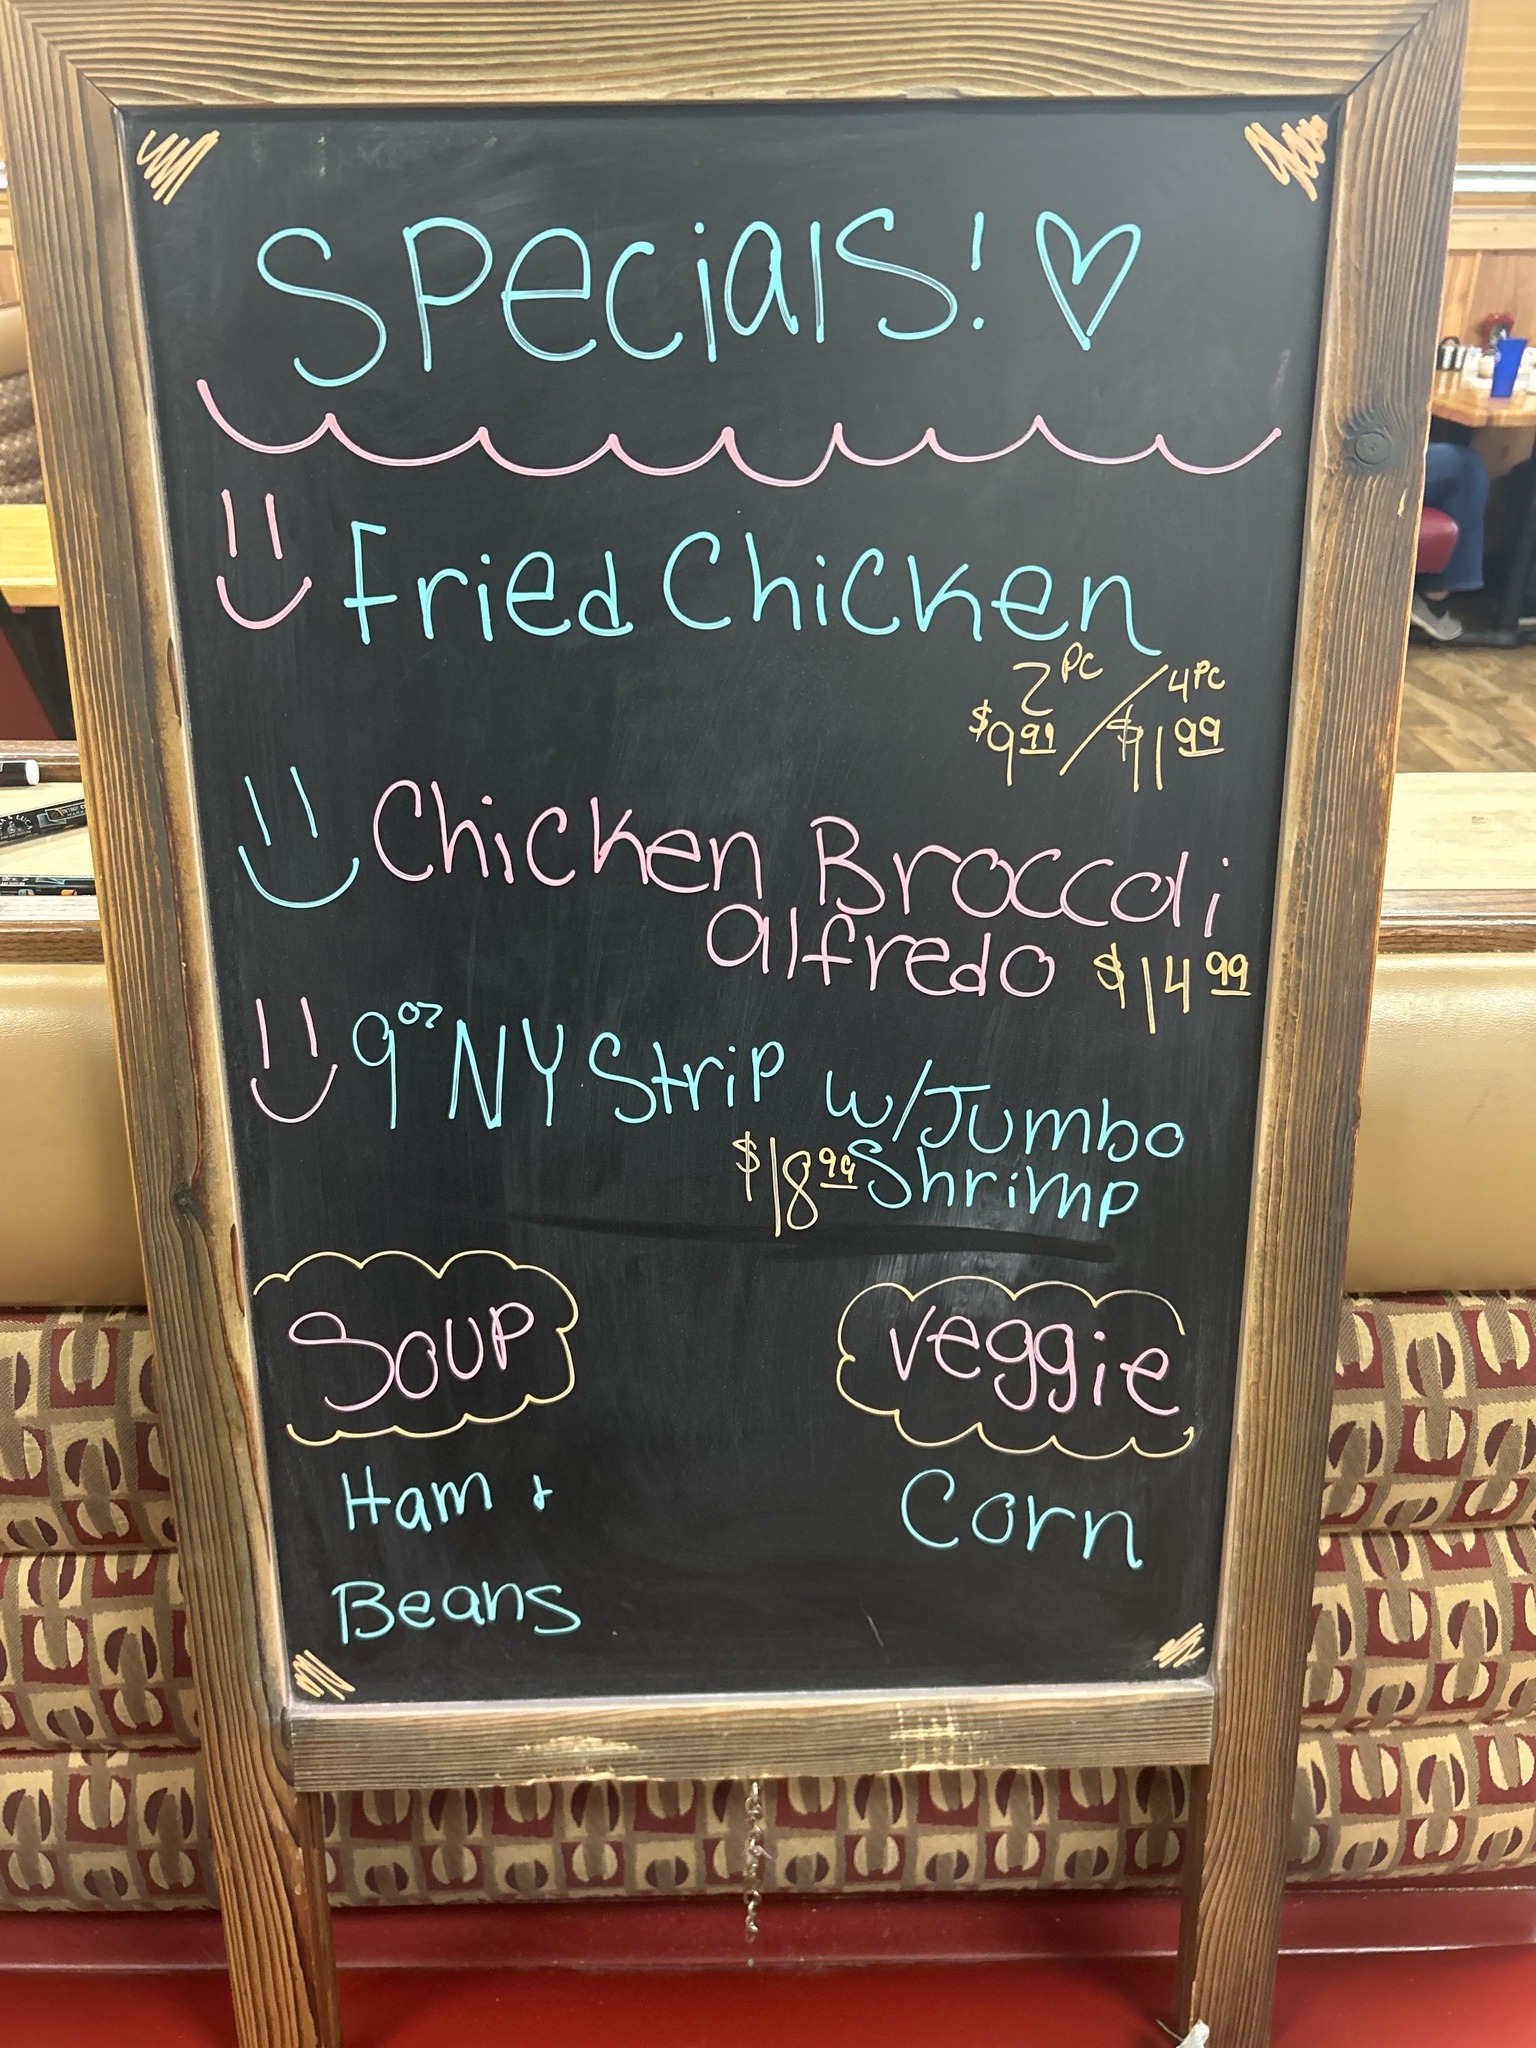 Specials! ♡
Fried Chicken
2 PC / 4 PC
$9.99 / $11.99
Chicken Broccoli
alfredo $14.99
9oz NY Strip w/Jumbo
$18.99 Shrimp
Soup
Veggie
Ham +
Beans
Corn